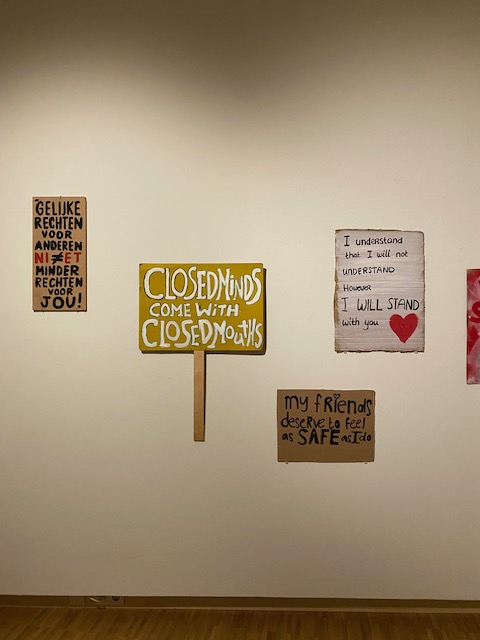 GELIJKE
RECHTEN
VOOR
ANDEREN
NI≠ET
MINDER
RECHTEN
VOOR
JOU!
CLOSEDMINDS
COME WITH
CLOSEDMOUTHS
I understand
that I will not
UNDERSTAND
However
I WILL STAND
with you
my fRiends
deserve to feel
as SAFE as I do